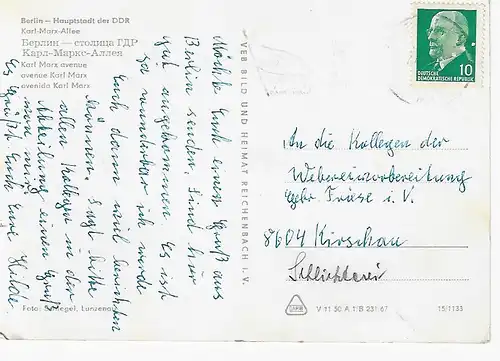 Berlin – Hauptstadt der DDR
Karl-Marx-Allee
Берлин — столица ГДР
Карл-Маркс-Аллея
Karl Marx avenue
avenue Karl Marx
avenida Karl Marx
Möchte Euch einen Gruß aus
Berlin senden. Sind hier
gut angekommen. Es ist
so wunderbar ich werde
Euch dann viel berichten
können. Sagt bitte
allen Kollegen in der
Abteilung einen Gruß
von mir.
Es grüßt Euch Eure Hilde
Foto: Lunzenau
VEB BILD UND HEIMAT REICHENBACH I. V.
10
DEUTSCHE
DEMOKRATISCHE REPUBLIK
An die Kollegen der
Webereivorbereitung
Gebr. Friese i. V.
8604 Kirschau
Schlichterei
V 11 50 A 1/B 231/67
15/1133